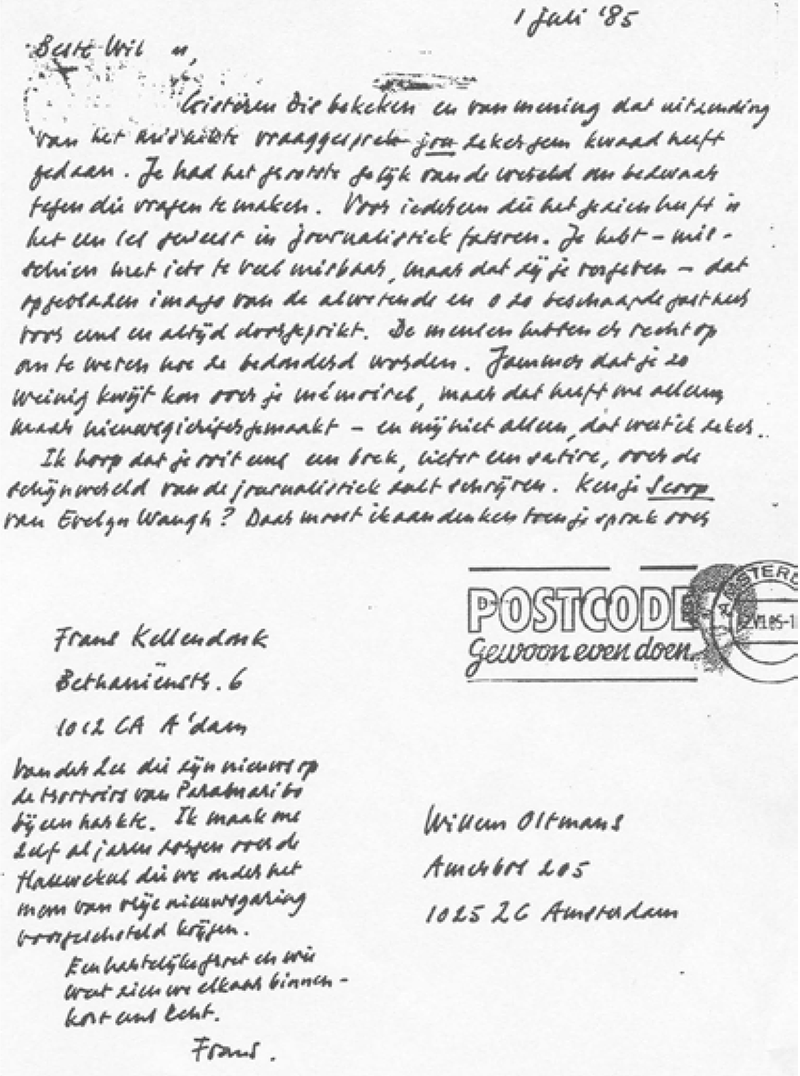 1 juli '85
Beste Wil m,
Gisteren Dis bekeken en van mening dat uitzending
van het mislukte vraaggesprek jou zeker geen kwaad heeft
gedaan. Je had het grootste gelijk van de wereld om bezwaar
tegen die vragen te maken. Voor iedereen die het gezien heeft is
het een les geweest in journalistiek fatsoen. Je hebt – mis-
schien met iets te veel misbaar, maar dat zij je vergeven – dat
opgeblazen imago van de alwetende en o zo beschaafde gastheer
voor eens en altijd doorgeprikt. De mensen hebben er recht op
om te weten hoe ze bedonderd worden. Jammer dat je zo
weinig kwijt kon over je mémoires, maar dat heeft me alleen
maar nieuwsgieriger gemaakt – en mij niet alleen, dat weet ik zeker.
Ik hoop dat je ooit eens een boek, liefst een satire, over de
schijnwereld van de journalistiek zult schrijven. Ken je Scoop
van Evelyn Waugh? Daar moest ik aan denken toen je sprak over
POSTCODE
Gewoon even doen
Frans Kellendonk
Bethaniënstr. 6
1012 CA A'dam
Van der Zee die zijn nieuws op
de trottoirs van Paramaribo
bijeen harkte. Ik maak me
zelf al jaren zorgen over de
flauwekul die we onder het
mom van vrije nieuwsgaring
voorgeschoteld krijgen.
Een hartelijke groet en wie
weet zien we elkaar binnen-
kort eens echt.
Frans.
Willem Oltmans
Amerbos 205
1025 ZG Amsterdam